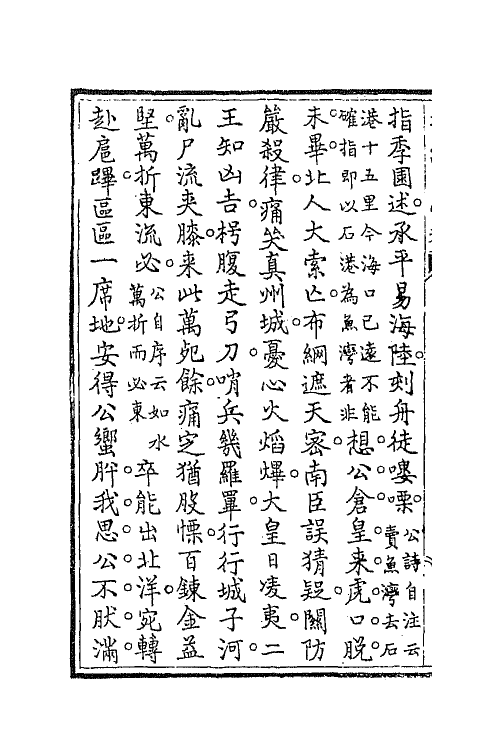 指季園述承平易海陸刻舟徒嘍㗚公詩自注云
賣魚灣去石
港十五里今海口已遠不能
確指即以石港為魚灣者非想公倉皇来虎口脱
未畢北人大索亡布網遮天密南臣誤猜疑關防
嚴殺律痛哭真州城憂心火焰熚大皇日凌夷二
王知凶吉枵腹走弓刀哨兵幾羅罩行行城子河
亂尸流夾膝来此萬死餘痛定猶股慄百鍊金益
堅萬折東流必公自序云如水
萬折而必東卒能出北洋宛轉
赴扈蹕區區一席地安得公蠁肸我思公不肰滿